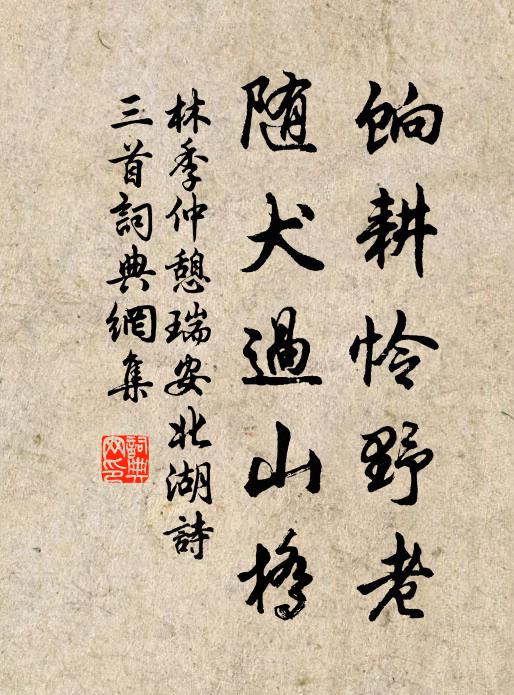 餉耕怜野老
随犬過山橋
林季仲憩瑞安北湖詩
三首詞典網集
詞典網印